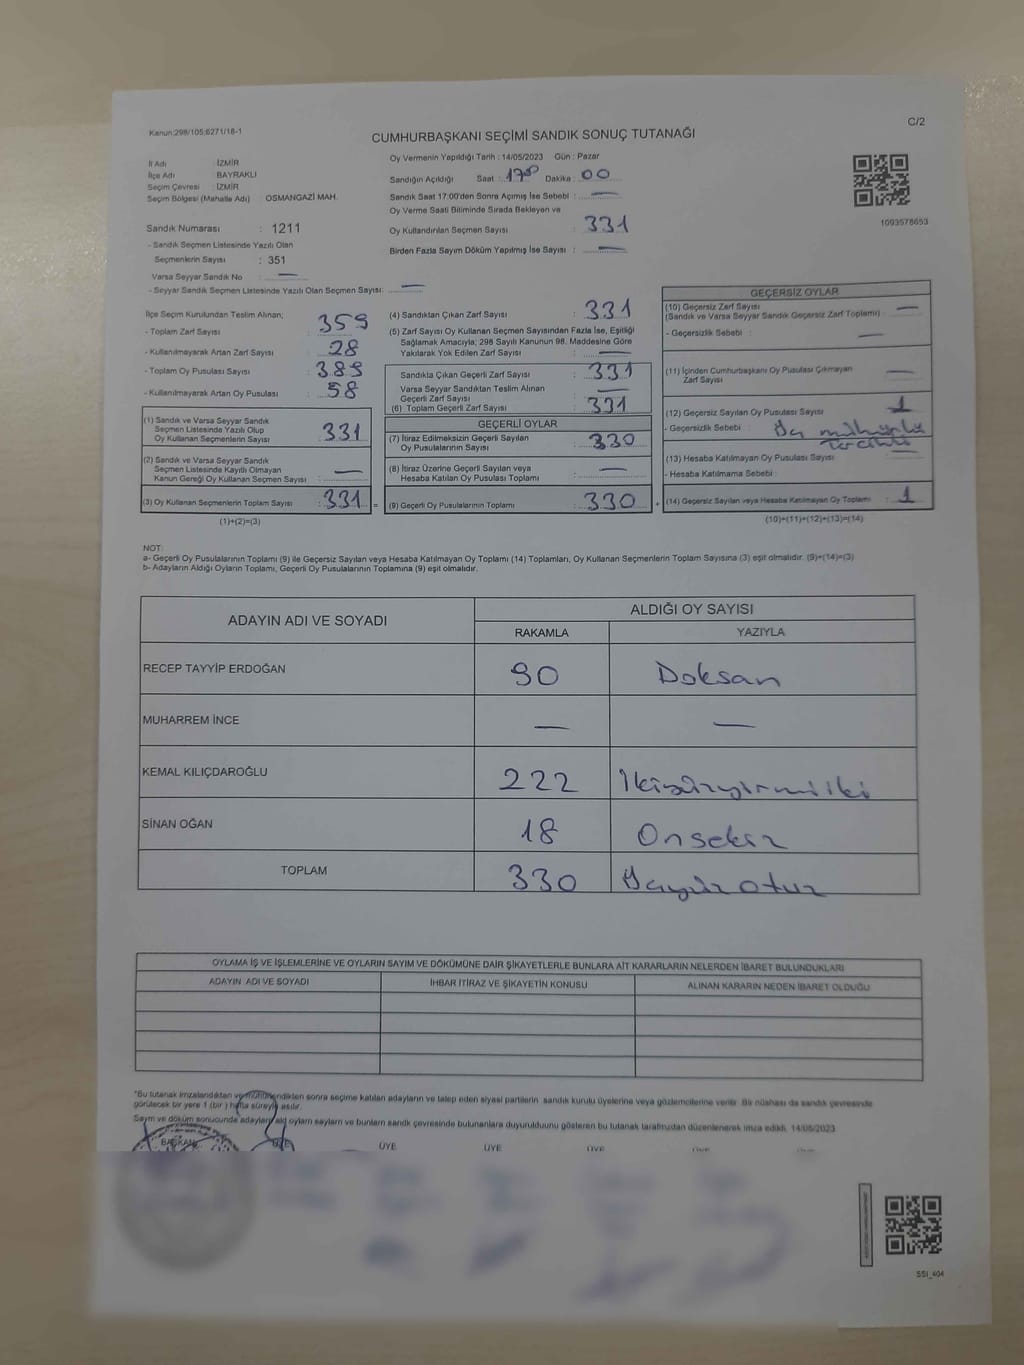 Kanun:298/105;6271/18-1
C/2
CUMHURBAŞKANI SEÇİMİ SANDIK SONUÇ TUTANAĞI
İl Adı : İZMİR
İlçe Adı : BAYRAKLI
Seçim Çevresi : İZMİR
Seçim Bölgesi (Mahalle Adı) : OSMANGAZİ MAH.
Oy Vermenin Yapıldığı Tarih : 14/05/2023 Gün : Pazar
Sandığın Açıldığı Saat : Dakika : 00
Sandık Saat 17:00'den Sonra Açımış İse Sebebi : —
Oy Verme Saati Bitiminde Sırada Bekleyen ve
Oy Kullandırılan Seçmen Sayısı : 331
Birden Fazla Sayım Döküm Yapılmış İse Sayısı : —
1093578653
Sandık Numarası : 1211
- Sandık Seçmen Listesinde Yazılı Olan
Seçmenlerin Sayısı : 351
Varsa Seyyar Sandık No : —
- Seyyar Sandık Seçmen Listesinde Yazılı Olan Seçmen Sayısı: —
İlçe Seçim Kurulundan Teslim Alınan;
- Toplam Zarf Sayısı : 359
- Kullanılmayarak Artan Zarf Sayısı : 28
- Toplam Oy Pusulası Sayısı : 389
- Kullanılmayarak Artan Oy Pusulası : 58
(1) Sandık ve Varsa Seyyar Sandık
Seçmen Listesinde Yazılı Olup
Oy Kullanan Seçmenlerin Sayısı : 331
(2) Sandık ve Varsa Seyyar Sandık
Seçmen Listesinde Kayıtlı Olmayan
Kanun Gereği Oy Kullanan Seçmen Sayısı : —
(3) Oy Kullanan Seçmenlerin Toplam Sayısı : 331 =
(1)+(2)=(3)
(4) Sandıktan Çıkan Zarf Sayısı : 331
(5) Zarf Sayısı Oy Kullanan Seçmen Sayısından Fazla İse, Eşitliği
Sağlamak Amacıyla; 298 Sayılı Kanunun 98. Maddesine Göre
Yakılarak Yok Edilen Zarf Sayısı : —
Sandıkta Çıkan Geçerli Zarf Sayısı : 331
Varsa Seyyar Sandıktan Teslim Alınan
Geçerli Zarf Sayısı : —
(6) Toplam Geçerli Zarf Sayısı : 331
GEÇERLİ OYLAR
(7) İtiraz Edilmeksizin Geçerli Sayılan
Oy Pusulalarının Sayısı : 330
(8) İtiraz Üzerine Geçerli Sayılan veya
Hesaba Katılan Oy Pusulası Toplamı : —
(9) Geçerli Oy Pusulalarının Toplamı : 330 +
GEÇERSİZ OYLAR
(10) Geçersiz Zarf Sayısı
(Sandık ve Varsa Seyyar Sandık Geçersiz Zarf Toplamı) : —
- Geçersizlik Sebebi : —
(11) İçinden Cumhurbaşkanı Oy Pusulası Çıkmayan
Zarf Sayısı : —
(12) Geçersiz Sayılan Oy Pusulası Sayısı : 1
- Geçersizlik Sebebi :
(13) Hesaba Katılmayan Oy Pusulası Sayısı : —
- Hesaba Katılmama Sebebi :
(14) Geçersiz Sayılan veya Hesaba Katılmayan Oy Toplamı : 1
(10)+(11)+(12)+(13)=(14)
NOT:
a- Geçerli Oy Pusulalarının Toplamı (9) ile Geçersiz Sayılan veya Hesaba Katılmayan Oy Toplamı (14) Toplamları, Oy Kullanan Seçmenlerin Toplam Sayısına (3) eşit olmalıdır. (9)+(14)=(3)
b- Adayların Aldığı Oyların Toplamı, Geçerli Oy Pusulalarının Toplamına (9) eşit olmalıdır.
ADAYIN ADI VE SOYADI ALDIĞI OY SAYISI
RAKAMLA YAZIYLA
RECEP TAYYİP ERDOĞAN 90 Doksan
MUHARREM İNCE — —
KEMAL KILIÇDAROĞLU 222 İkiyüzyirmiiki
SİNAN OĞAN 18 Onsekiz
TOPLAM 330 Üçyüzotuz
OYLAMA İŞ VE İŞLEMLERİNE VE OYLARIN SAYIM VE DÖKÜMÜNE DAİR ŞİKAYETLERLE BUNLARA AİT KARARLARIN NELERDEN İBARET BULUNDUKLARI
ADAYIN ADI VE SOYADI İHBAR İTİRAZ VE ŞİKAYETİN KONUSU ALINAN KARARIN NEDEN İBARET OLDUĞU
*Bu tutanak imzalandıktan ve mühürlendikten sonra seçime katılan adayların ve talep eden siyasi partilerin sandık kurulu üyelerine veya gözlemcilerine verilir. Bir nüshası da sandık çevresinde
görülecek bir yere 1 (bir ) hafta süreyle asılır.
Sayım ve döküm sonucunda adayların oyların sayıların ve bunların sandık çevresinde bulunanlara duyurulduunu gösteren bu tutanak tarafımızdan düzenlenerek imza edildi. 14/05/2023
BAŞKAN ÜYE ÜYE ÜYE ÜYE
SSI_404